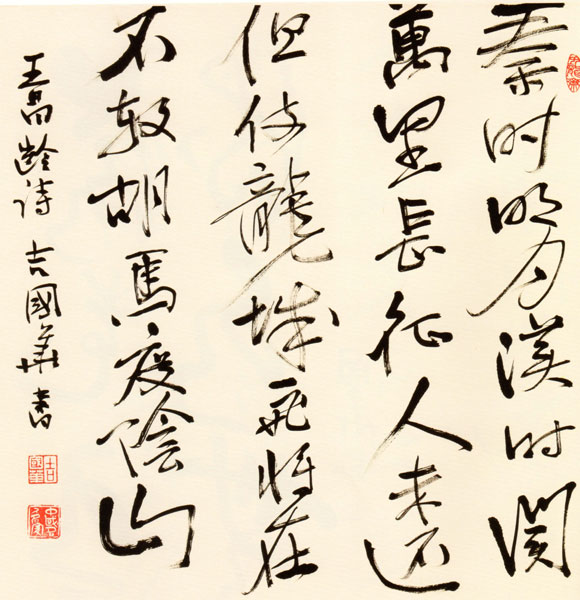 秦时明月漢时関
萬里長征人未还
但使龍城飛将在
不教胡馬度陰山
王昌齡诗 吉國華書
吉國華